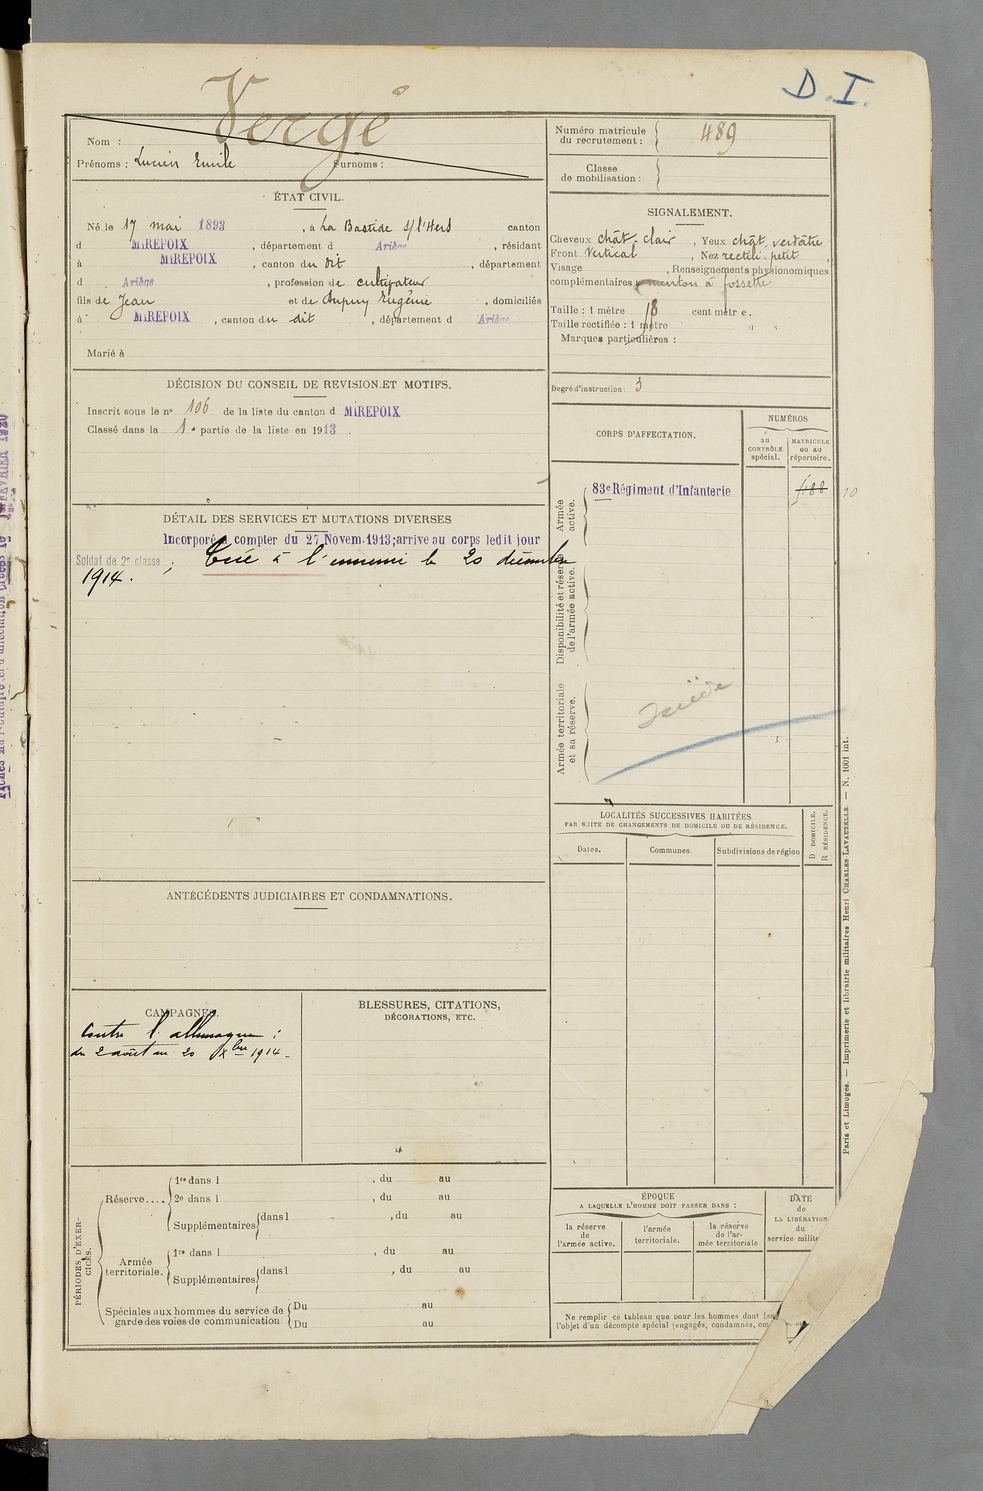 D.I.
Vergé
Nom :
Prénoms : Lucien Emile Surnoms :
Numéro matricule du recrutement : 489
Classe de mobilisation :
ÉTAT CIVIL.
Né le 17 mai 1893, à La Bastide s/l'Hers canton
d MIREPOIX, département d Ariège, résidant
à MIREPOIX, canton du dit, département
d Ariège, profession de cultivateur
fils de Jean et de Dupuy Eugénie, domiciliés
à MIREPOIX, canton du dit, département d Ariège
Marié à
SIGNALEMENT.
Cheveux chât. clair, Yeux chât. verdâtre
Front Vertical, Nez rectil. petit,
Visage , Renseignements physionomiques
complémentaires : menton à fossette
Taille : 1 mètre 78 cent mètr e.
Taille rectifiée : 1 mètre
Marques particulières :
Degré d'instruction : 3
DÉCISION DU CONSEIL DE REVISION ET MOTIFS.
Inscrit sous le n° 106 de la liste du canton d MIREPOIX
Classé dans la 1e partie de la liste en 1913.
CORPS D'AFFECTATION.
NUMÉROS
au CONTRÔLE spécial.
MATRICULE ou au répertoire.
Armée active.
83e Régiment d'Infanterie
10
Disponibilité et réserve de l'armée active.
Armée territoriale et sa réserve.
DÉTAIL DES SERVICES ET MUTATIONS DIVERSES
Incorporé à compter du 27 Novem. 1913; arrivé au corps ledit jour
Soldat de 2e classe ; Tué à l'ennemi le 20 décembre
1914.
LOCALITÉS SUCCESSIVES HABITÉES
PAR SUITE DE CHANGEMENTS DE DOMICILE OU DE RÉSIDENCE.
Dates.
Communes.
Subdivisions de région
D DOMICILE.
R RÉSIDENCE.
ANTÉCÉDENTS JUDICIAIRES ET CONDAMNATIONS.
CAMPAGNES.
Contre l'allemagne :
du 2 août au 20 Xbre 1914.
BLESSURES, CITATIONS,
DÉCORATIONS, ETC.
PÉRIODES D'EXERCICES.
Réserve....
1re dans l , du au
2e dans l , du au
Supplémentaires dans l , du au
Armée territoriale.
1re dans l , du au
Supplémentaires dans l , du au
Spéciales aux hommes du service de garde des voies de communication
Du au
Du au
ÉPOQUE
A LAQUELLE L'HOMME DOIT PASSER DANS :
la réserve de l'armée active.
l'armée territoriale.
la réserve de l'armée territoriale
DATE de LA LIBÉRATION du service milit
Ne remplir ce tableau que pour les hommes dont les
l'objet d'un décompte spécial (engagés, condamnés, om
Paris et Limoges. — Imprimerie et librairie militaires Henri CHARLES LAVAUZELLE. — N. 1001 int.